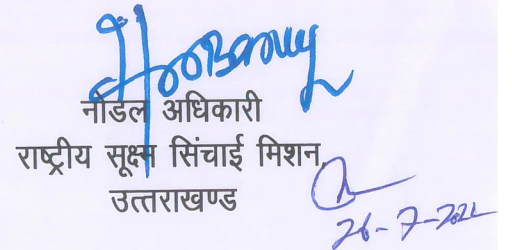 नोडल अधिकारी
राष्ट्रीय सूक्ष्म सिंचाई मिशन,
उत्तराखण्ड
26-7-2021